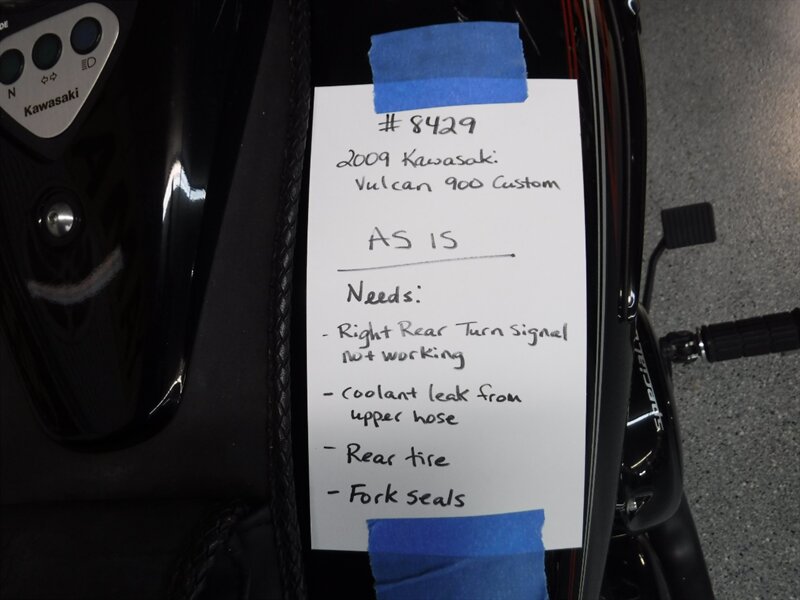 N
Kawasaki
# 8429
2009 Kawasaki
Vulcan 900 Custom
AS IS
Needs:
- Right Rear Turn Signal
not working
- coolant leak from
upper hose
- Rear tire
- Fork seals
special